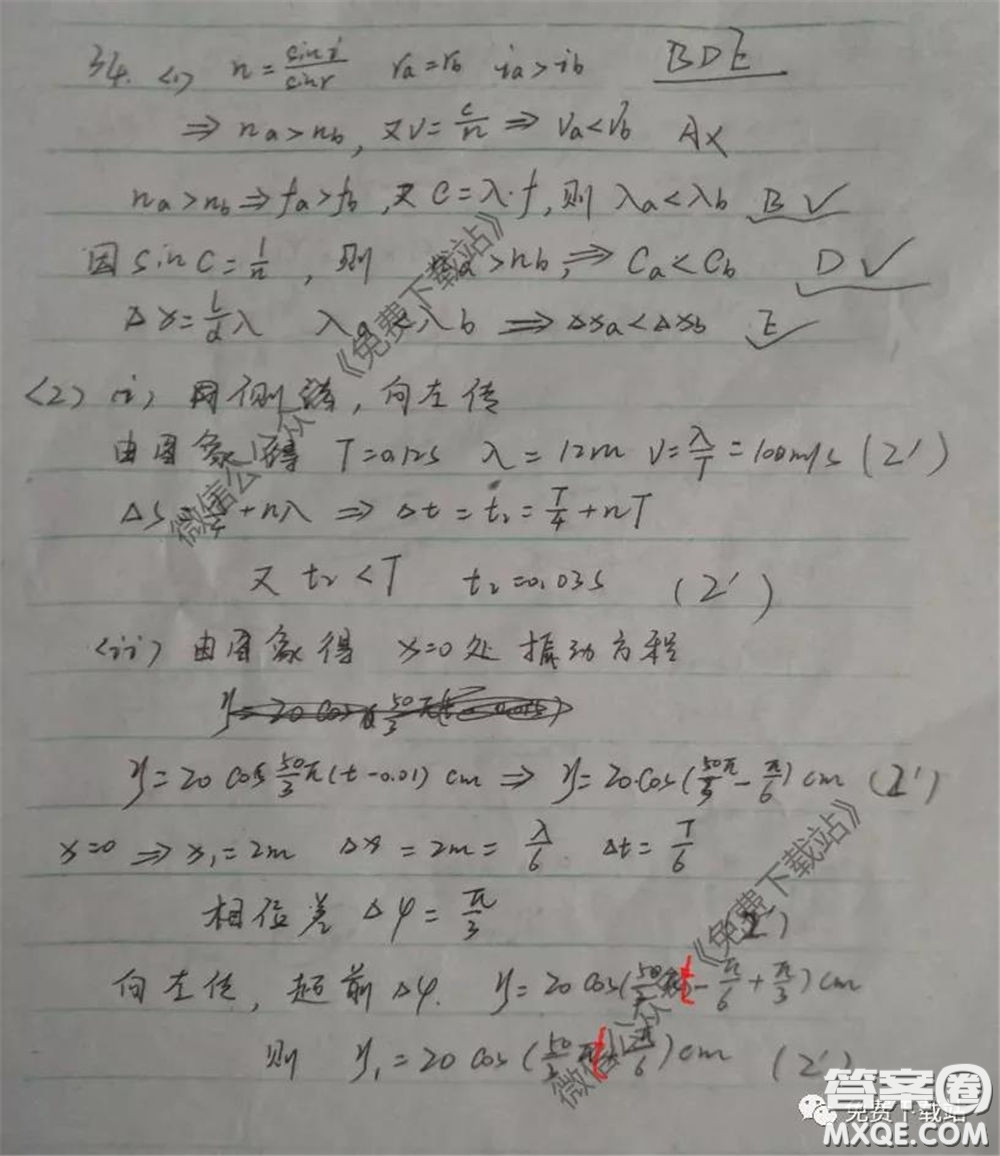 34. <1> n = sin i / sin r  ra = rb  ia > ib  BDE
⇒ na > nb, 又 v = c/n ⇒ va < vb  A×
na > nb ⇒ fa > fb, 又 C = λ·f, 则 λa < λb  B ✓
因 sin C = 1/n, 则 na > nb, ⇒ Ca < Cb  D ✓
Δx = L/d λ  λa < λb ⇒ Δxa < Δxb  E ✓
<2> (i) 同侧法, 向左传
由图象得 T = 0.12s  λ = 12m  v = λ/T = 100m/s (2')
Δs = + nλ ⇒ Δt = t₂ = T/4 + nT
又 t₂ < T  t₂ = 0.03s (2')
<ii> 由图象得 x=0处振动方程
y = 20 cos 50/3 π
y = 20 cos 50/3 π (t - 0.01) cm ⇒ y = 20·cos(50π/3 - π/6) cm (2')
x=0 ⇒ x₁ = 2m  Δx = 2m = λ/6  Δt = T/6
相位差 Δφ = π/3 (2')
向左传, 超前 Δφ. y = 20 cos(50/ t - π/6 + π/3) cm
则 y₁ = 20 cos (50/ π t π/6) cm (2')
微信公众《免费下载站》
微信公众《免费下载站》
免费下载站
答案圈
MXQE.COM